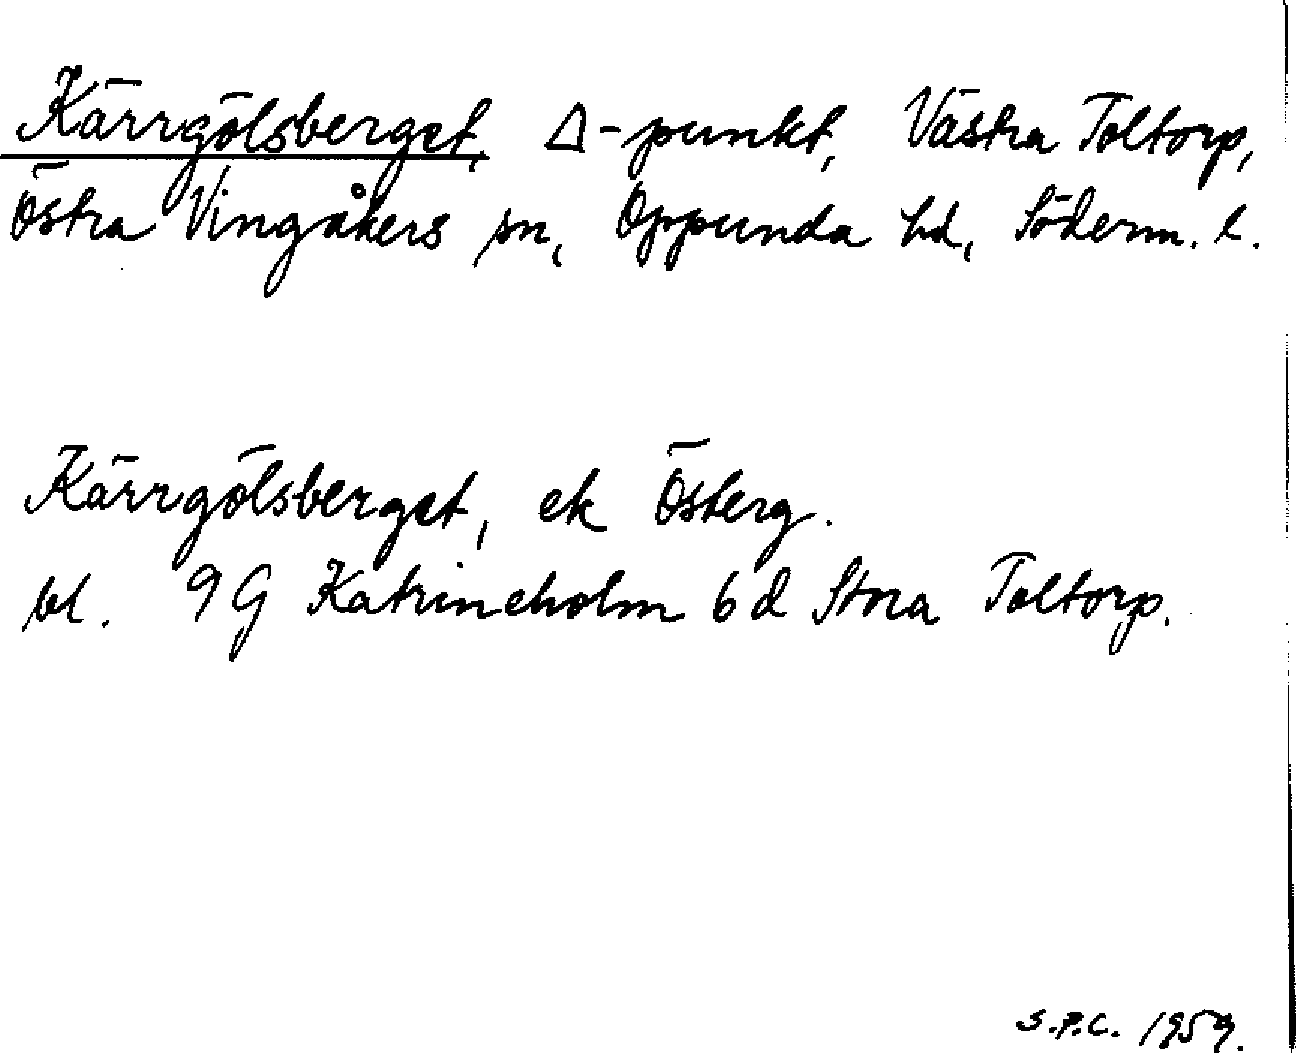 Kärrgölsberget, Δ-punkt, Västra Toltorp,
Östra Vingåkers sn, Oppunda hd, Söderm. l.
Kärrgölsberget, ek Österg.
bl. 9G Katrineholm 6d Stora Toltorp.
S.P.C. 1959.